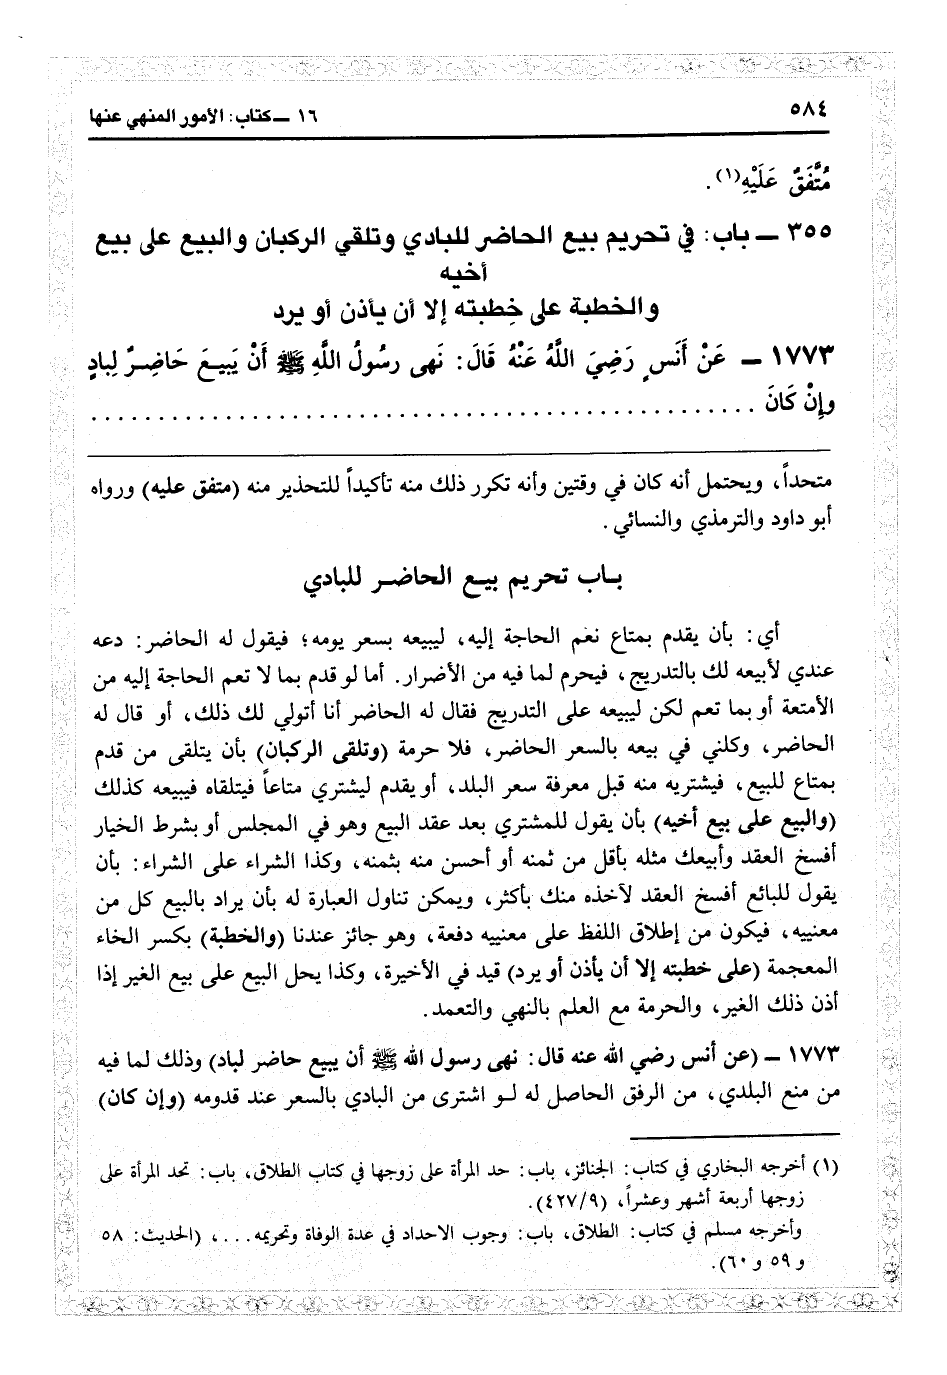 ٥٨٤
١٦ ــ كتاب: الأمور المنهي عنها
مُتَّفَقٌ عَلَيْهِ(١).
٣٥٥ ــ باب: في تحريم بيع الحاضر للبادي وتلقي الركبان والبيع على بيع
أخيه
والخطبة على خِطبته إلا أن يأذن أو يرد
١٧٧٣ ــ عَنْ أَنَسٍ رَضِيَ اللَّهُ عَنْهُ قَالَ: نَهى رسُولُ اللَّهِ ﷺ أَنْ يَبِيعَ حَاضِرٌ لِبادٍ
وإِنْ كَانَ ................................................
متحداً، ويحتمل أنه كان في وقتين وأنه تكرر ذلك منه تأكيداً للتحذير منه (متفق عليه) ورواه
أبو داود والترمذي والنسائي.
باب تحريم بيع الحاضر للبادي
أي: بأن يقدم بمتاع نعم الحاجة إليه، ليبيعه بسعر يومه؛ فيقول له الحاضر: دعه
عندي لأبيعه لك بالتدريج، فيحرم لما فيه من الأضرار. أما لو قدم بما لا تعم الحاجة إليه من
الأمتعة أو بما تعم لكن ليبيعه على التدريج فقال له الحاضر أنا أتولي لك ذلك، أو قال له
الحاضر، وكلني في بيعه بالسعر الحاضر، فلا حرمة (وتلقى الركبان) بأن يتلقى من قدم
بمتاع للبيع، فيشتريه منه قبل معرفة سعر البلد، أو يقدم ليشتري متاعاً فيتلقاه فيبيعه كذلك
(والبيع على بيع أخيه) بأن يقول للمشتري بعد عقد البيع وهو في المجلس أو بشرط الخيار
أفسخ العقد وأبيعك مثله بأقل من ثمنه أو أحسن منه بثمنه، وكذا الشراء على الشراء: بأن
يقول للبائع أفسخ العقد لآخذه منك بأكثر، ويمكن تناول العبارة له بأن يراد بالبيع كل من
معنييه، فيكون من إطلاق اللفظ على معنييه دفعة، وهو جائز عندنا (والخطبة) بكسر الخاء
المعجمة (على خطبته إلا أن يأذن أو يرد) قيد في الأخيرة، وكذا يحل البيع على بيع الغير إذا
أذن ذلك الغير، والحرمة مع العلم بالنهي والتعمد.
١٧٧٣ ــ (عن أنس رضي الله عنه قال: نهى رسول الله ﷺ أن يبيع حاضر لباد) وذلك لما فيه
من منع البلدي، من الرفق الحاصل له لــو اشترى من البادي بالسعر عند قدومه (وإن كان)
(١) أخرجه البخاري في كتاب: الجنائز، باب: حد المرأة على زوجها في كتاب الطلاق، باب: تحد المرأة على
زوجها أربعة أشهر وعشراً، (٤٢٧/٩).
وأخرجه مسلم في كتاب: الطلاق، باب: وجوب الاحداد في عدة الوفاة وتحريمه...، (الحديث: ٥٨
و ٥٩ و ٦٠).